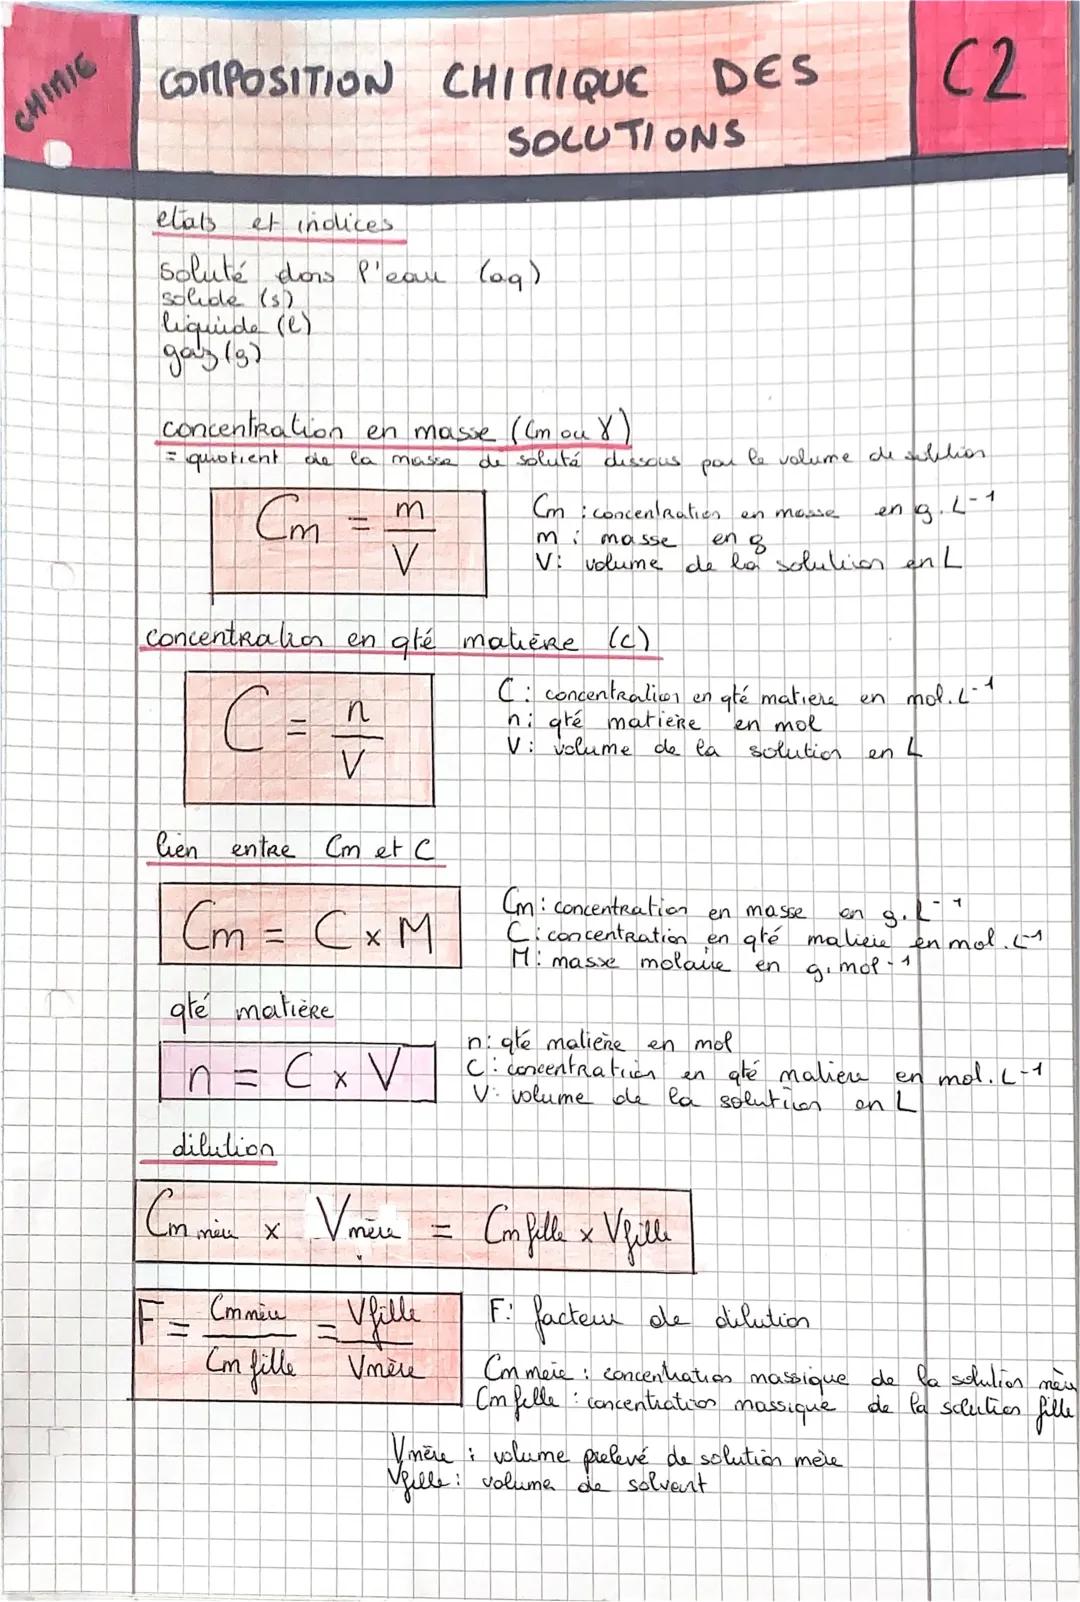 CHIMIE
COMPOSITION CHIMIQUE DES
SOLUTIONS
C2
etats et indices
soluté dans l'eau (aq)
solide (s)
liquide (l)
gaz (g)
concentration en masse (Cm ou γ)
= quotient de la masse de soluté dissous par le volume de solution
Cm = m/V
Cm : concentration en masse en g.L-1
m : masse en g
V : volume de la solution en L
concentration en qté matière (c)
C = n/V
C : concentration en qté matière en mol.L-1
n : qté matière en mol
V : volume de la solution en L
lien entre Cm et C
Cm = C x M
Cm : concentration en masse en g.L-1
C : concentration en qté matière en mol.L-1
M : masse molaire en g.mol-1
qté matière
n = C x V
n : qté matière en mol
C : concentration en qté matière en mol.L-1
V : volume de la solution en L
dilution
Cm mère x Vmère = Cm fille x Vfille
F = Cm mère/Cm fille = Vfille/Vmère
F : facteur de dilution
Cm mère : concentration massique de la solution mère
Cm fille : concentration massique de la solution fille
Vmère : volume prelevé de solution mère
Vfille : volume de solvant